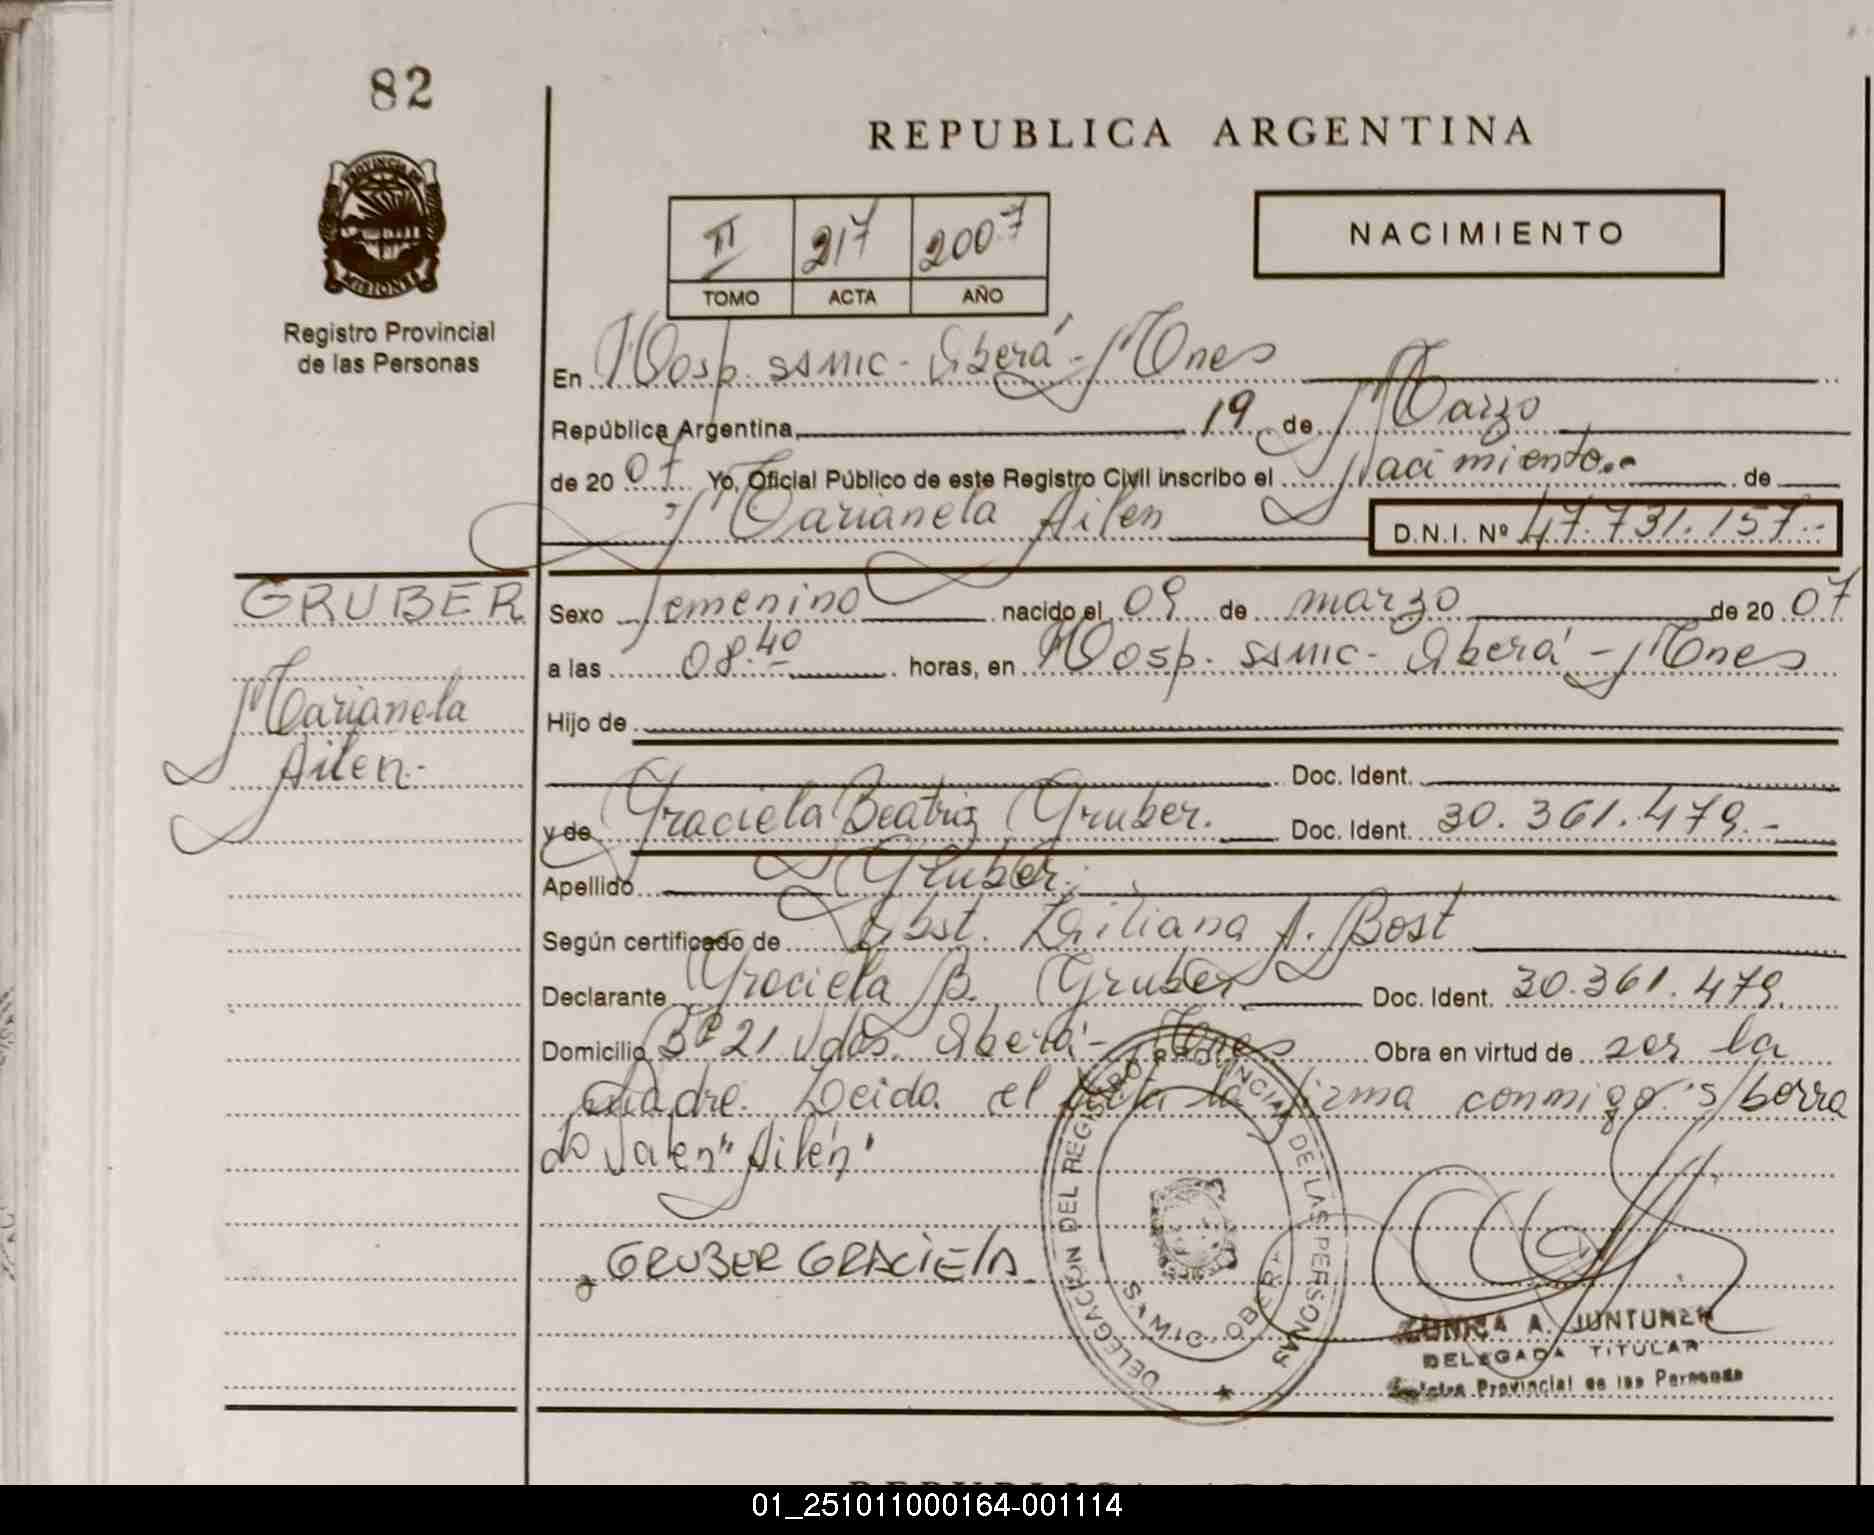 82
REPUBLICA ARGENTINA
PROVINCIA DE
MISIONES
Registro Provincial
de las Personas
II 217 2007
TOMO ACTA AÑO
NACIMIENTO
En Hosp. SAMIC - Oberá - Mnes
República Argentina, 19 de Marzo
de 20 07 Yo, Oficial Público de este Registro Civil inscribo el Nacimiento.- de
Marianela Ailen D.N.I. Nº 47.731.157.-
GRUBER
Marianela
Ailen.-
Sexo femenino nacido el 09 de marzo de 20 07
a las 08.40 horas, en Hosp. SAMIC - Oberá - Mnes
Hijo de
Doc. Ident.
y de Graciela Beatriz Gruber. Doc. Ident. 30.361.479.-
Apellido Gruber.
Según certificado de Obst. Liliana A. Bost
Declarante Graciela B. Gruber Doc. Ident. 30.361.479
Domicilio Bº 21 Vdas. Oberá - Mnes Obra en virtud de ser la
Madre. Leida el Acta la firma conmigo. S/borra
do Valen "Ailén"
GRUBER GRACIELA
DELEGACIÓN DEL REGISTRO PROVINCIAL DE LAS PERSONAS
OBERA
A. JUNTUNEN
DELEGADA TITULAR
Provincial de las Personas
01_251011000164-001114